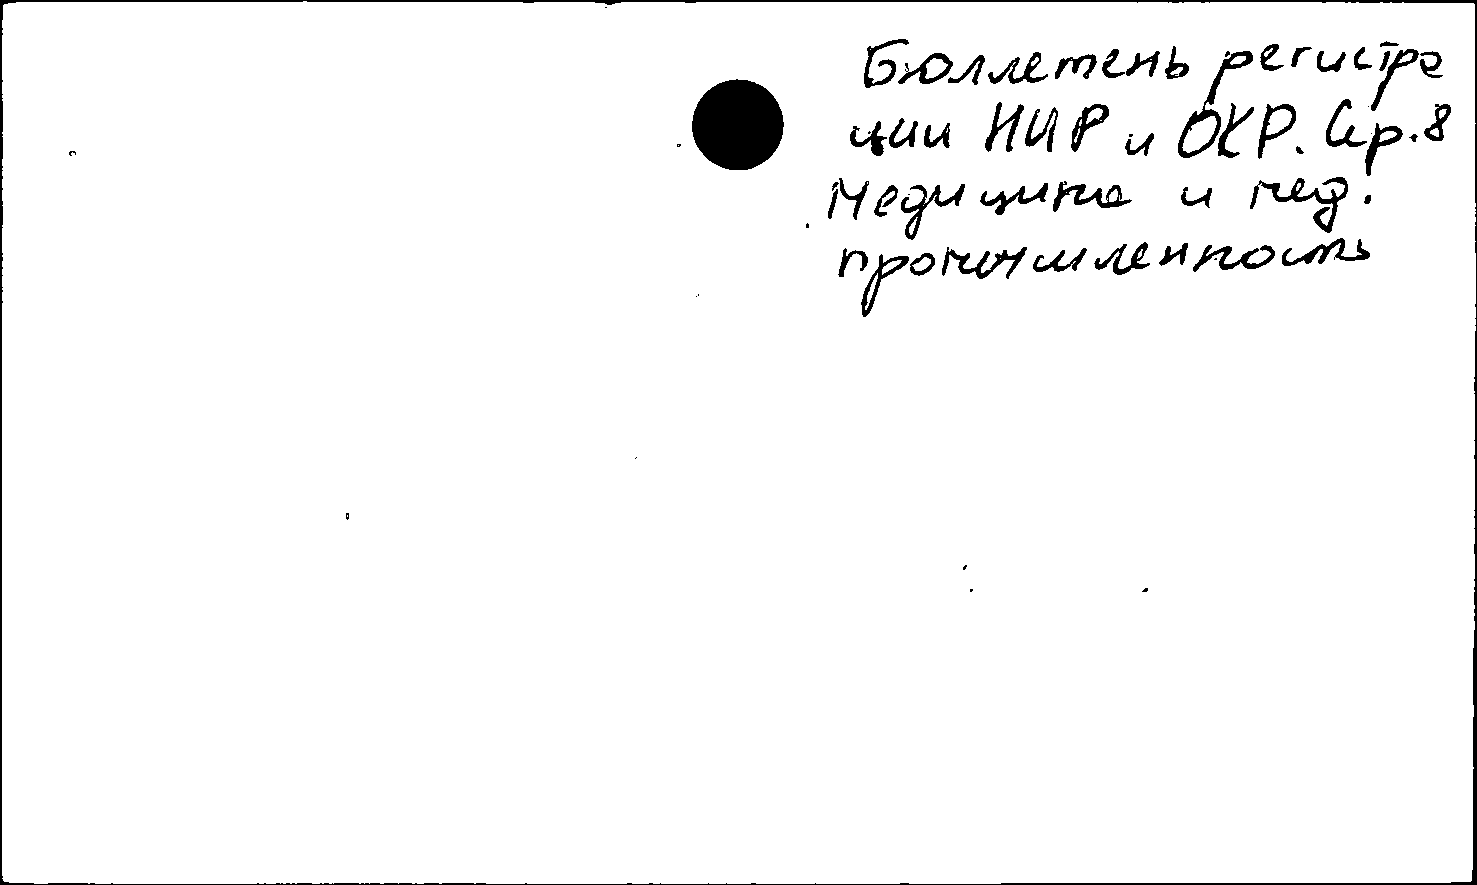 Бюллетень регистра
ции НИР и ОКР. Сер. 8
Медицина и мед.
промышленность